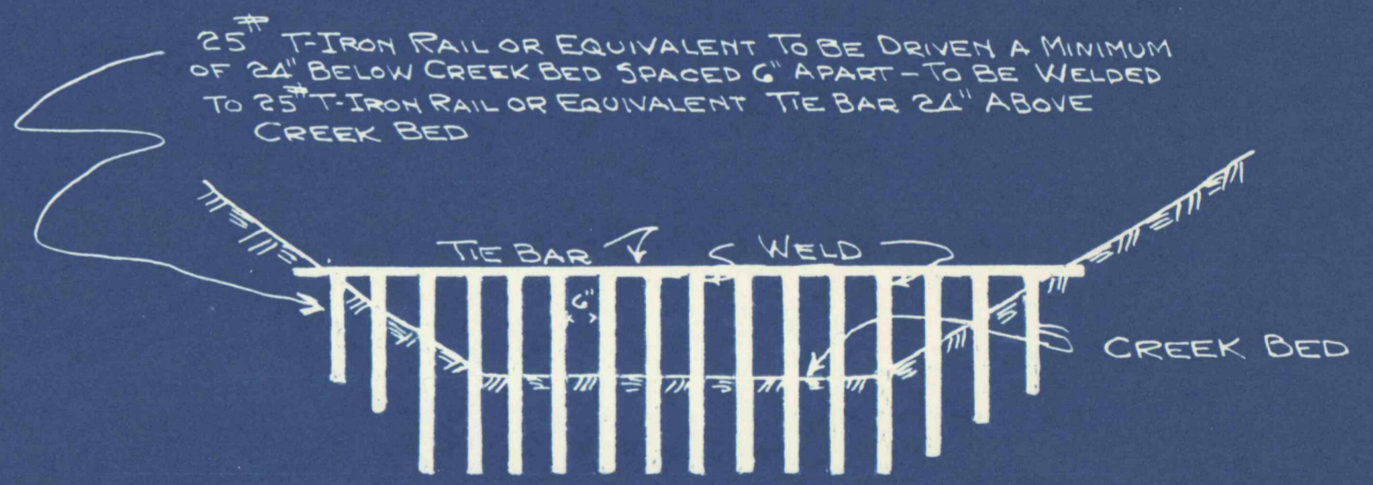 25# T-IRON RAIL OR EQUIVALENT TO BE DRIVEN A MINIMUM
OF 24" BELOW CREEK BED SPACED 6" APART - TO BE WELDED
TO 25# T-IRON RAIL OR EQUIVALENT TIE BAR 24" ABOVE
CREEK BED
TIE BAR
WELD
6"
CREEK BED